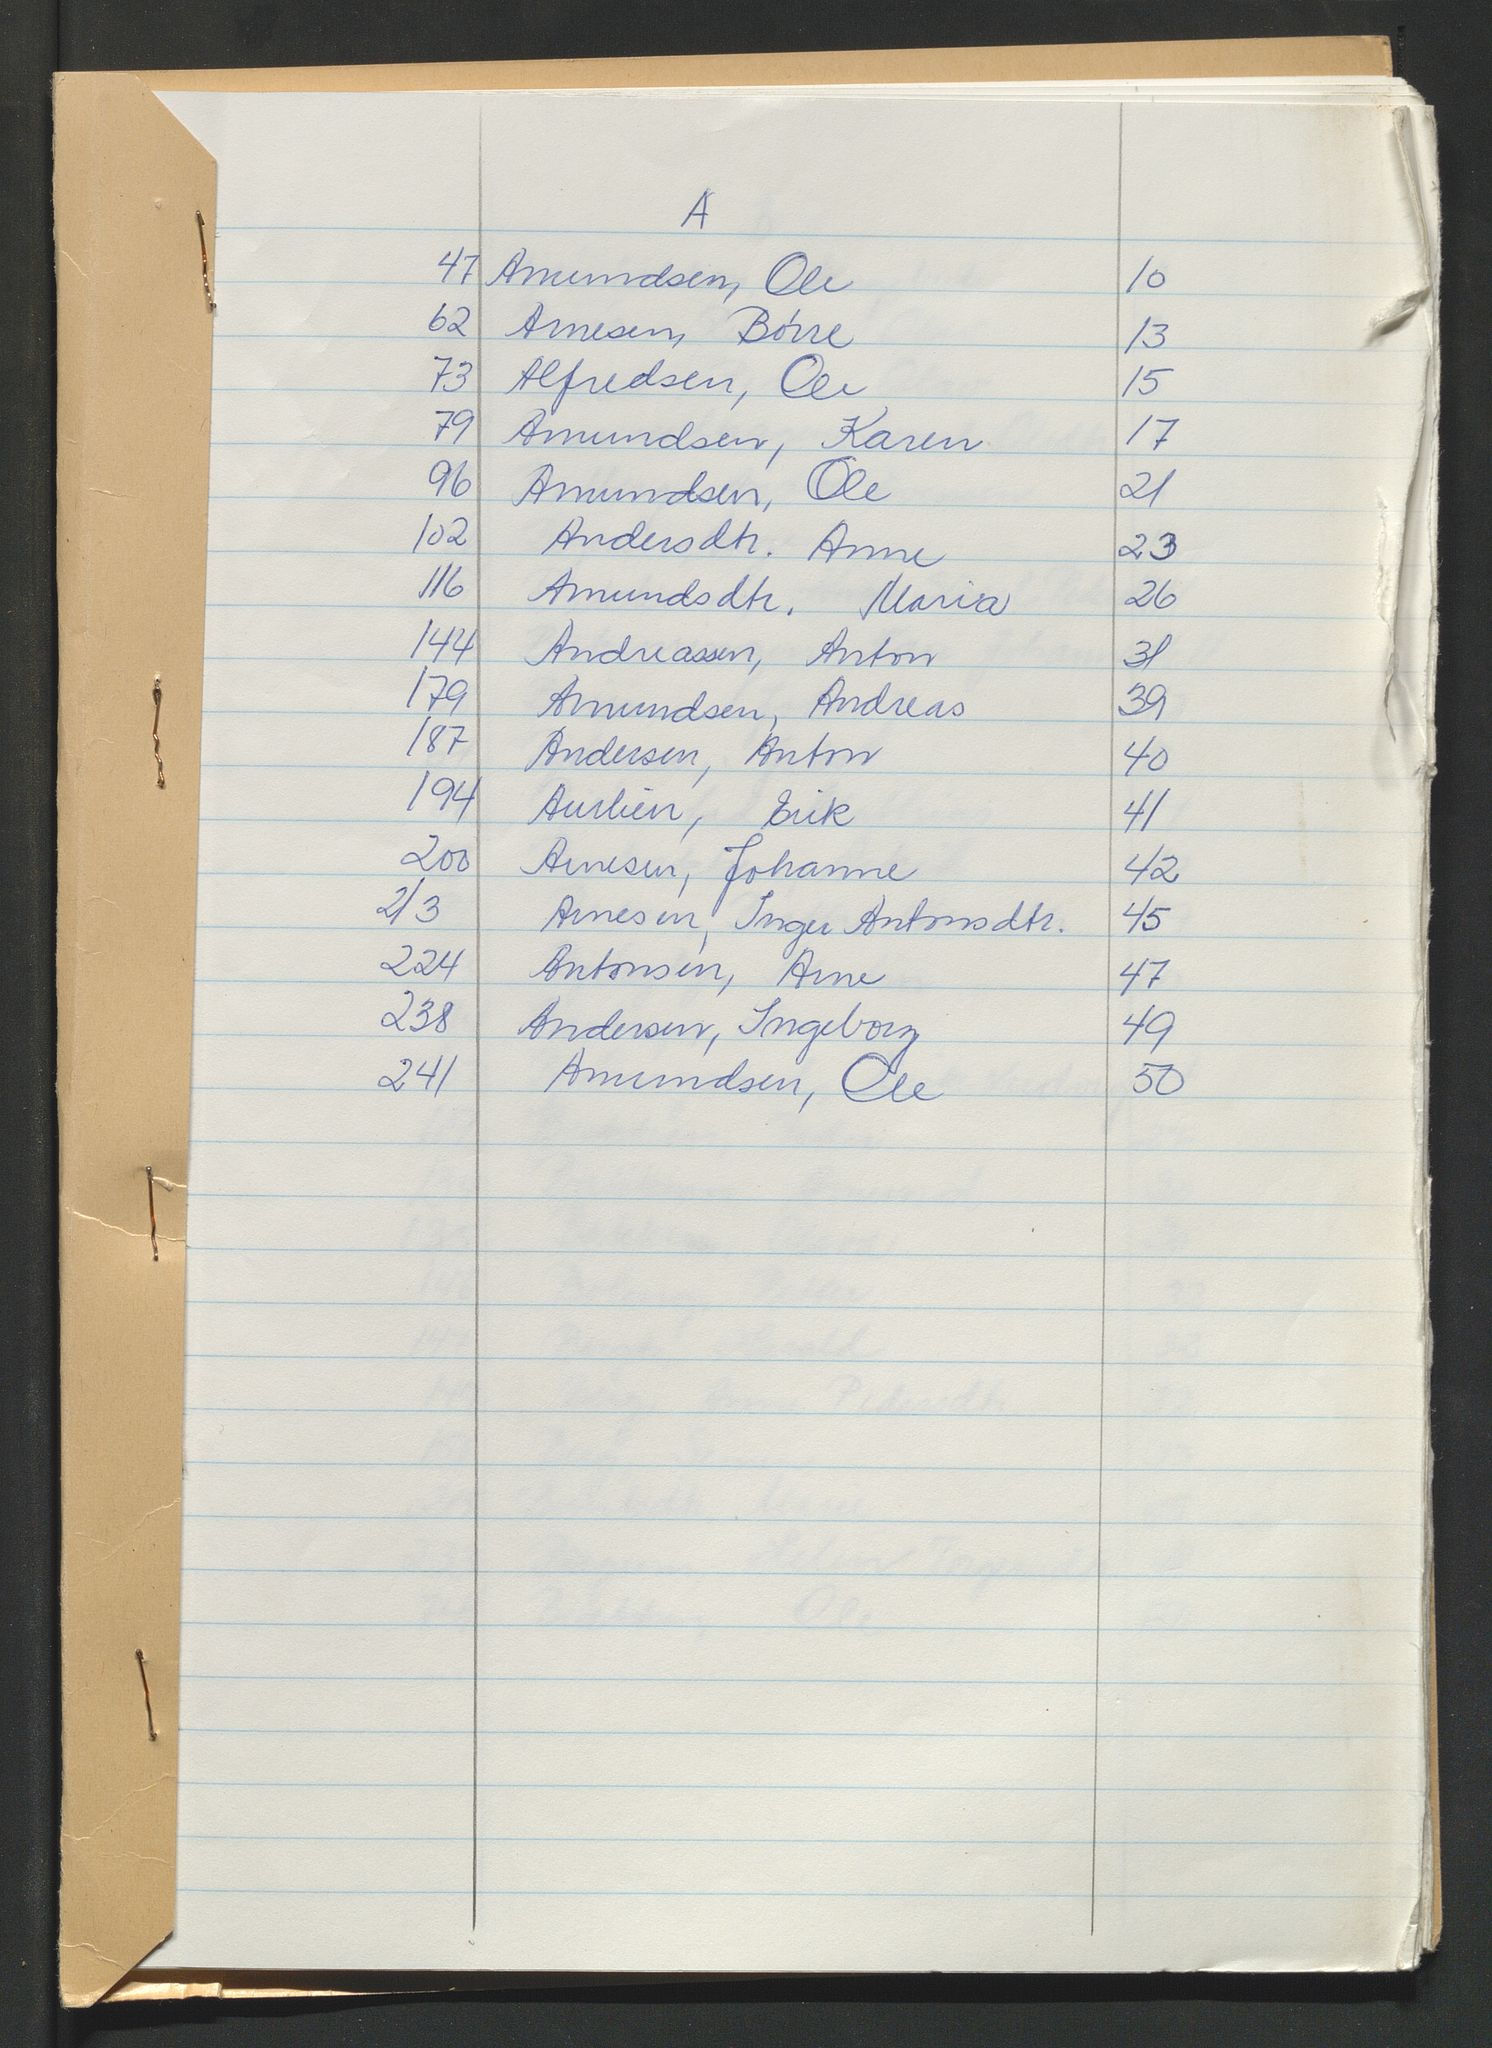 A
47 Amundsen, Ole 10
62 Arnesen, Börre 13
73 Alfredsen, Ole 15
79 Amundsen, Karen 17
96 Amundsen, Ole 21
102 Andersdtr. Anne 23
116 Amundsdtr. Maria 26
144 Andreassen, Anton 31
179 Amundsen, Andreas 39
187 Andersen, Anton 40
194 Aurlien, Erik 41
200 Arnesen, Johanne 42
213 Arnesen, Inger Antonsdtr. 45
224 Antonsen, Arne 47
238 Andersen, Ingeborg 49
241 Amundsen, Ole 50